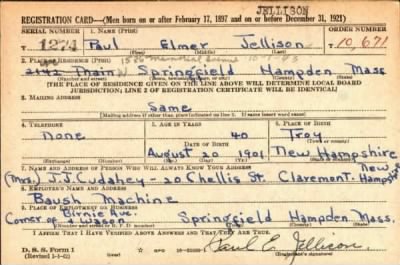 JELLISON
REGISTRATION CARD—(Men born on or after February 17, 1897 and on or before December 31, 1921)
SERIAL NUMBER 1. NAME (Print) ORDER NUMBER
T 1274 Paul Elmer Jellison T 10,671
(First) (Middle) (Last)
2. PLACE OF RESIDENCE (Print)
2142 Main Springfield Hampden Mass
(Number and street) (Town, township, village, or city) (County) (State)
[THE PLACE OF RESIDENCE GIVEN ON THE LINE ABOVE WILL DETERMINE LOCAL BOARD
JURISDICTION; LINE 2 OF REGISTRATION CERTIFICATE WILL BE IDENTICAL]
3. MAILING ADDRESS
Same
(Mailing address if other than place indicated on line 2. If same insert word same)
4. TELEPHONE 5. AGE IN YEARS 6. PLACE OF BIRTH
None 40 Troy
DATE OF BIRTH (Town or county)
August 20 1901 New Hampshire
(Exchange) (Number) (Mo.) (Day) (Yr.) (State or country)
7. NAME AND ADDRESS OF PERSON WHO WILL ALWAYS KNOW YOUR ADDRESS New
(Mrs.) J. S. Cudahey - 20 Chellis St. Claremont. Hampshire
8. EMPLOYER'S NAME AND ADDRESS
Baush Machine
9. PLACE OF EMPLOYMENT OR BUSINESS
Corner of Birnie Ave. & Wason Springfield Hampden Mass.
(Number and street or R. F. D. number) (Town) (County) (State)
I AFFIRM THAT I HAVE VERIFIED ABOVE ANSWERS AND THAT THEY ARE TRUE.
D. S. S. Form 1
(Revised 1-1-42) (over)
Paul E. Jellison.